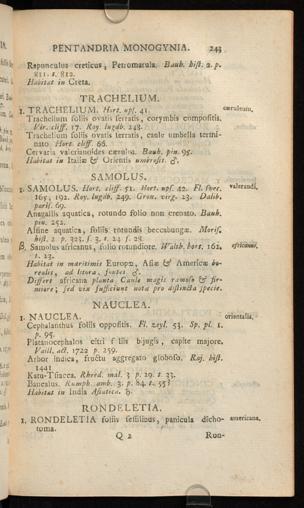 PENTANDRIA MONOGYNIA. 243
Rapunculus creticus, Petromarula. Bauh. hist. 2. p.
811. t. 812.
Habitat in Creta.
TRACHELIUM.
1. TRACHELIUM. Hort. upf. 41. cæruleum.
Trachelium foliis ovatis serratis, corymbis compositis.
Vir. cliff. 17. Roy. lugdb. 248.
Trachelium foliis ovatis serratis, caule umbella termi-
nato. Hort. cliff. 66.
Cervaria valerianoides cærulea. Bauh. pin. 95.
Habitat in Italiæ & Orientis umbrosis. ♂.
SAMOLUS.
1. SAMOLUS. Hort. cliff. 51. Hort. upf. 42. Fl. suec. valerandi.
165, 192. Roy. lugdb. 249. Gron. virg. 23. Dalib.
paris. 69.
Anagallis aquatica, rotundo folio non crenato. Bauh.
pin. 252.
Alsine aquatica, foliis rotundis beccabungæ. Moris.
hist. 2. p. 323. s. 3. t. 24. f. 28.
β. Samolus africanus, folio rotundiore. Walth. hort. 162,
t. 23.
Habitat in maritimis Europæ, Asiæ & Americæ bo-
realis, ad litora, fontes ♂.
Differt africana planta Caule magis ramoso & fir-
miore; sed vix sufficiunt nota pro distincta specie.
NAUCLEA.
1. NAUCLEA. orientalis.
Cephalanthus foliis oppositis. Fl. zeyl. 53. Sp. pl. 1.
p. 95.
Platanocephalus citri foliis bijugis, capite majore.
Vaill. act. 1722 p. 259.
Arbor indica, fructu aggregato globoso. Raj. hist.
1441
Katu-Tsiacca. Rheed. mal. 3 p. 29. t. 33.
Bancalus. Rumph. amb. 3. p. 84. t. 55
Habitat in India Asiatica. ♄.
RONDELETIA.
1. RONDELETIA foliis sessilibus, panicula dicho- americana.
toma.
Q 2 Ron-